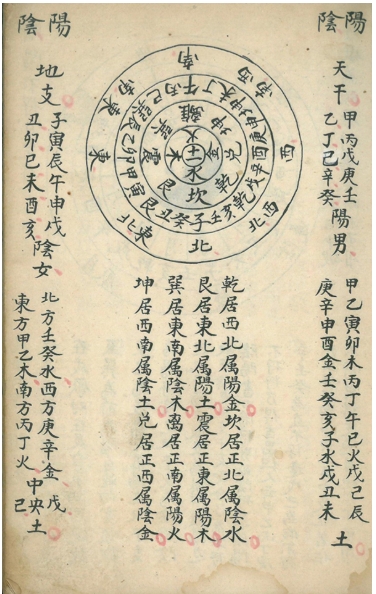 陽陰
天干
甲丙戊庚壬
乙丁己辛癸
陽男
甲乙寅卯木丙丁午巳火戊己辰
庚辛申酉金壬癸亥子水戌丑未
土
南
西南
西
西北
北
東北
東
東南
子癸丑艮寅甲卯乙辰巽巳丙午丁未坤申庚酉辛戌乾亥壬
坎艮震巽離坤兌乾
水木火金
土
乾居西北属陽金坎居正北属陰水
艮居東北属陽土震居正東属陽木
巽居東南属陰木离居正南属陽火
坤居西南属陰土兌居正西属陰金
陽陰
地支
子寅辰午申戌
丑卯巳未酉亥
陰女
北方壬癸水西方庚辛金戊
東方甲乙木南方丙丁火中央己土